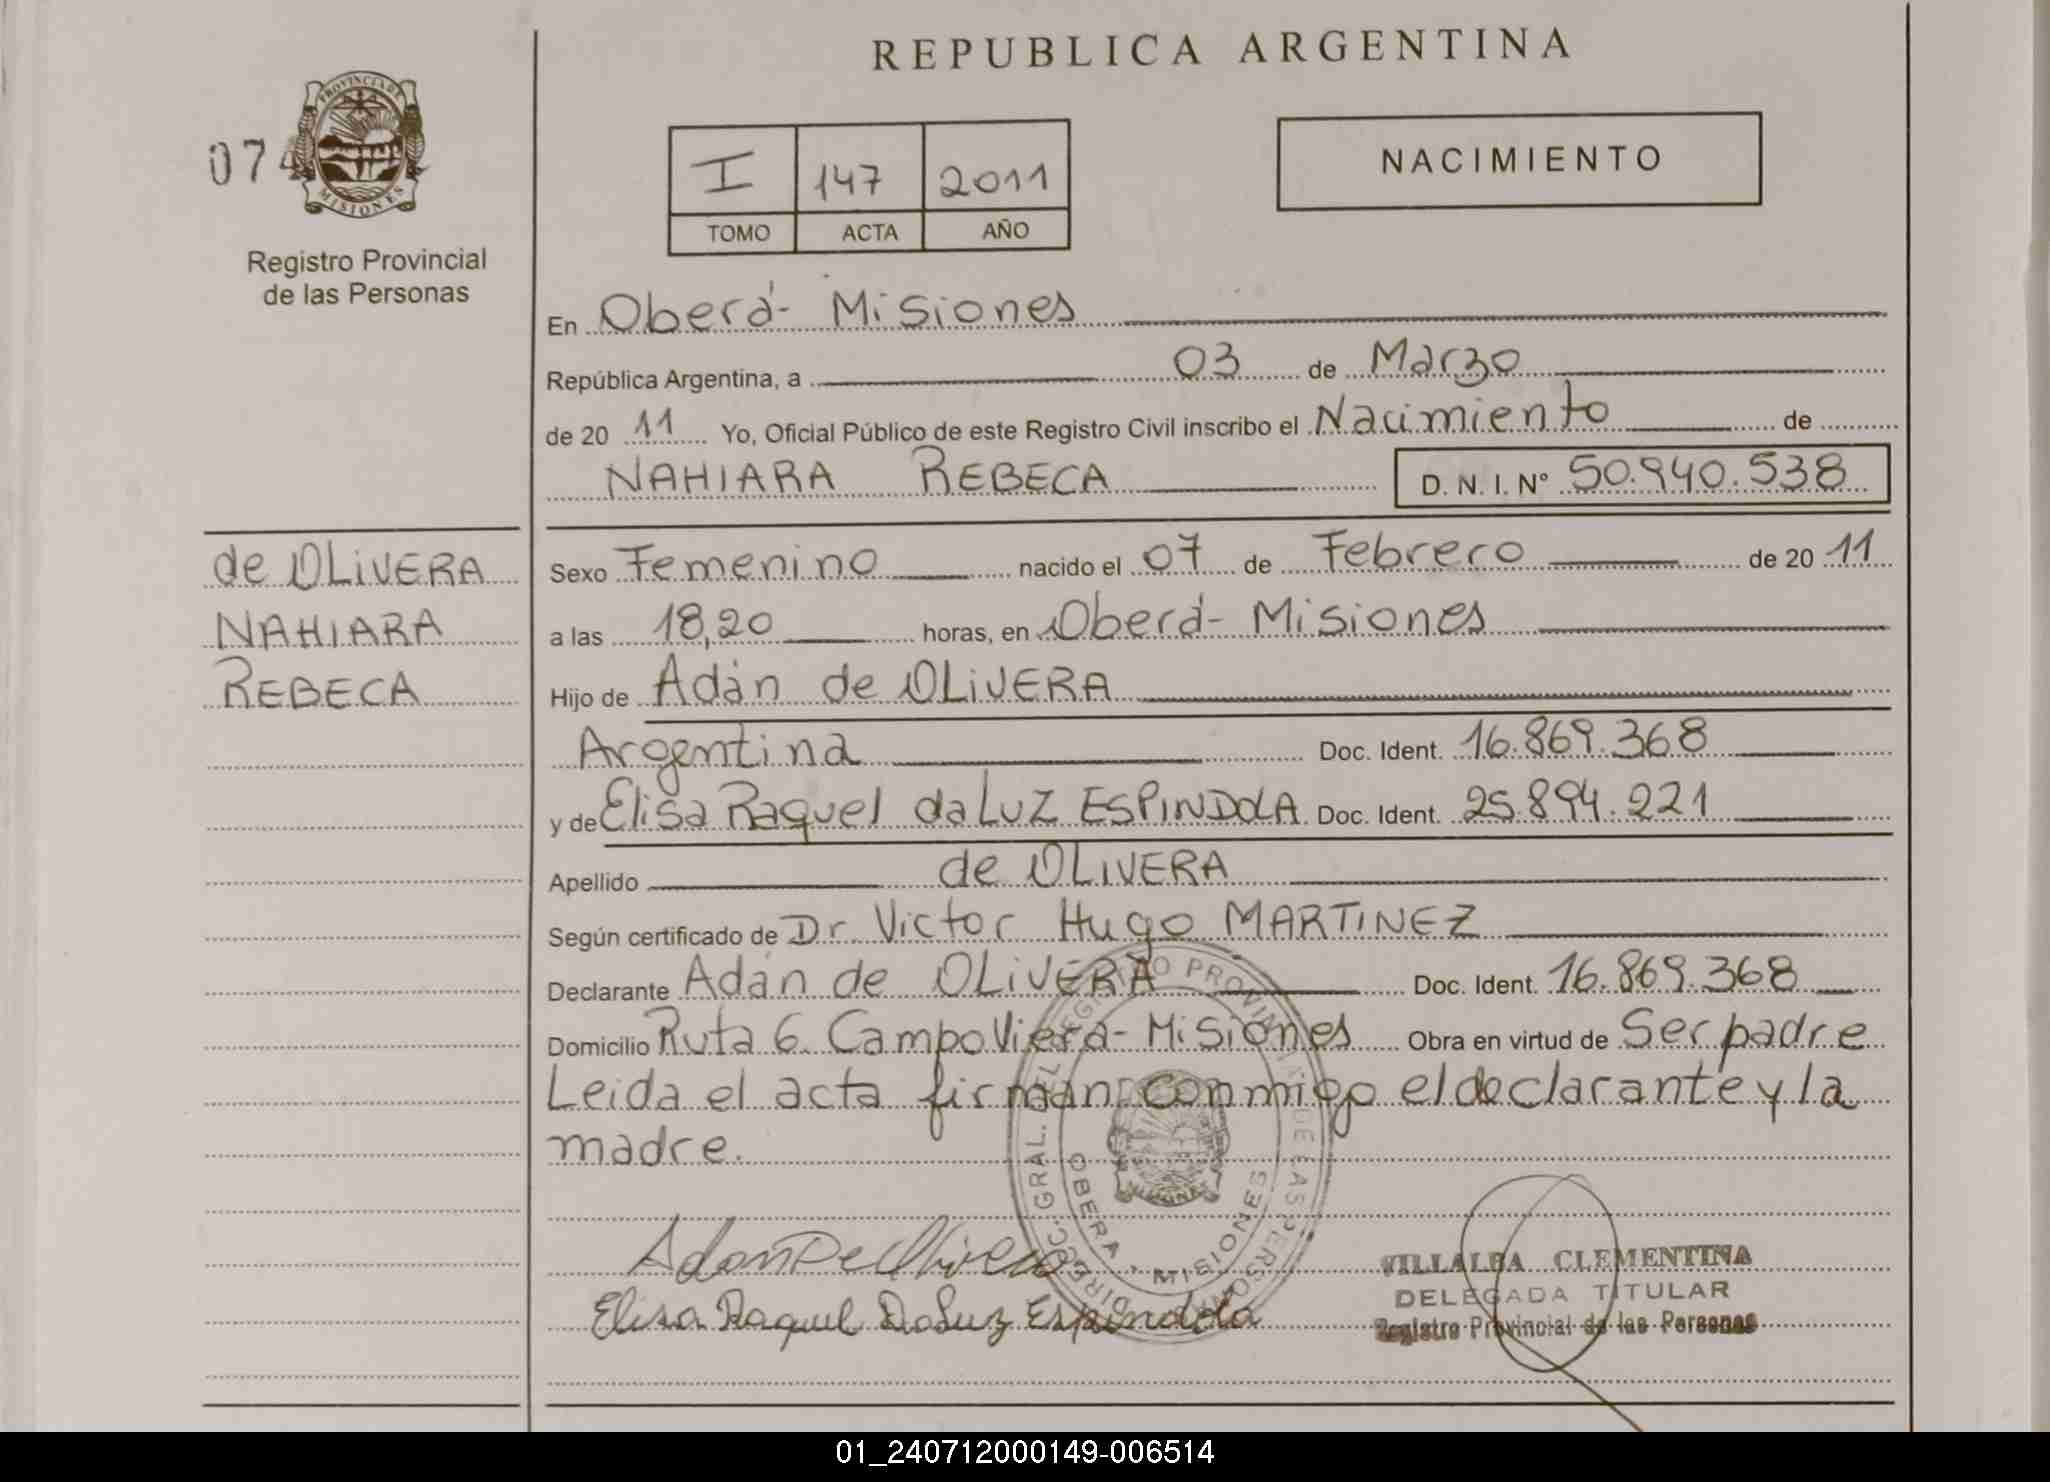 REPUBLICA ARGENTINA
PROVINCIA DE
MISIONES
074
Registro Provincial
de las Personas
I 147 2011
TOMO ACTA AÑO
NACIMIENTO
En Oberá - Misiones
República Argentina, a 03 de Marzo
de 20 11 Yo, Oficial Público de este Registro Civil inscribo el Nacimiento de
NAHIARA REBECA D. N. I. Nº 50.940.538
de OLiVERA
NAHIARA
REBECA
Sexo Femenino nacido el 07 de Febrero de 20 11
a las 18,20 horas, en Oberá - Misiones
Hijo de Adán de OLiVERA
Argentina Doc. Ident. 16.869.368
y de Elisa Raquel da LUZ ESPINDOLA Doc. Ident. 25.894.221
Apellido de OLIVERA
Según certificado de Dr Victor Hugo MARTINEZ
Declarante Adán de OLiVERA Doc. Ident. 16.869.368
Domicilio Ruta 6 Campo Viera - Misiones Obra en virtud de Ser padre
Leida el acta firman conmigo el declarante y la
madre.
DIRECC. GRAL. DEL REGISTRO PROVINCIAL DE LAS PERSONAS
OBERA - MISIONES
Adan De Olivera
Elisa Raquel Da Luz Espindola
VILLALBA CLEMENTINA
DELEGADA TITULAR
Registro Provincial de las Personas
01_240712000149-006514